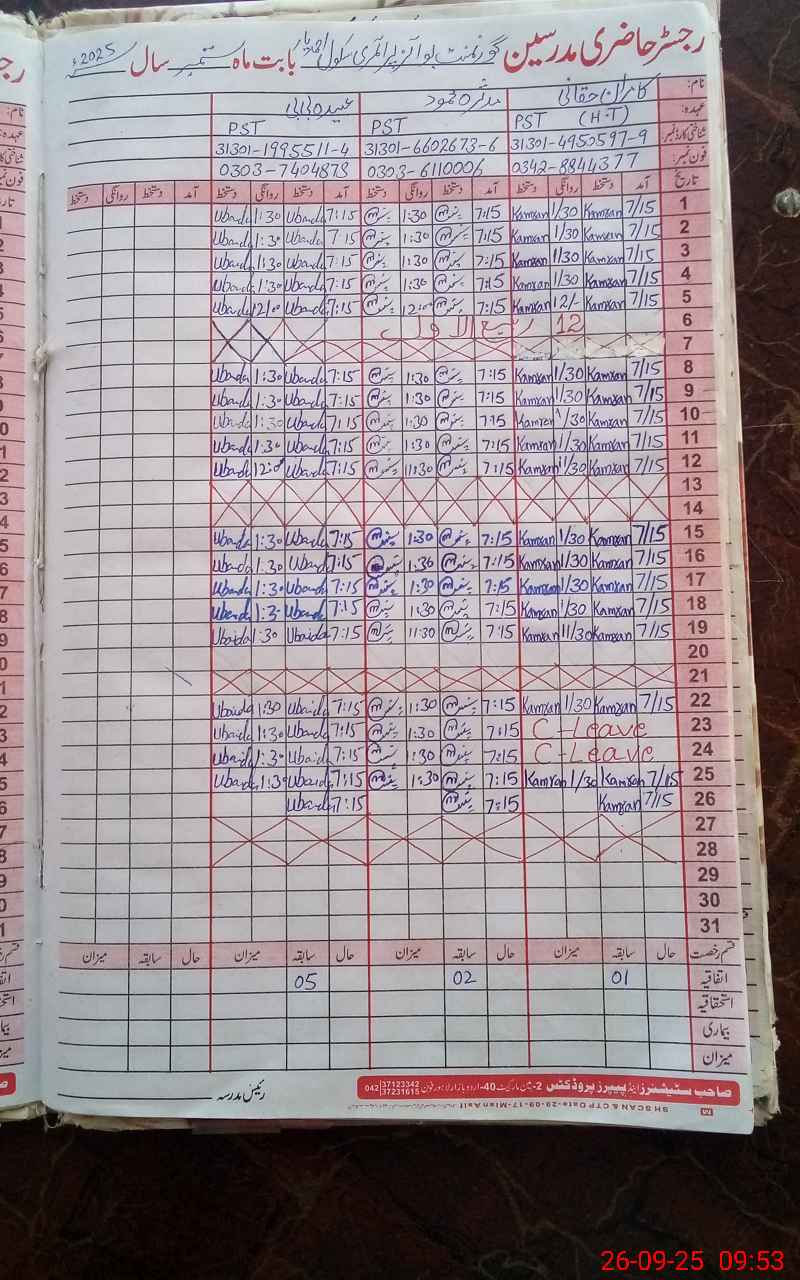 رجسٹر حاضری مدرسین گورنمنٹ بوائز پرائمری سکول بابت ماہ ستمبر سال 2025ء
نام: کامران حقانی مدثرہ محمود عبیدہ بی بی
عہدہ: PST (H-T) PST PST
شناختی کارڈ نمبر 31301-4950597-9 31301-6602673-6 31301-1995511-4
فون نمبر: 0342-8844377 0303-6110006 0303-7404878
تاریخ آمد دستخط روانگی دستخط آمد دستخط روانگی دستخط آمد دستخط روانگی دستخط آمد دستخط روانگی دستخط
1 7/15 Kamran 1/30 Kamran 7:15 1:30 7:15 Ubaida 1:30 Ubaida
2 7/15 Kamran 1/30 Kamran 7:15 1:30 7:15 Ubaida 1:30 Ubaida
3 7/15 Kamran 1/30 Kamran 7:15 1:30 7:15 Ubaida 1:30 Ubaida
4 7/15 Kamran 1/30 Kamran 7:15 1:30 7:15 Ubaida 1:30 Ubaida
5 7/15 Kamran 12/- Kamran 7:15 12:00 7:15 Ubaida 12:00 Ubaida
6 12 ربیع الاول
7
8 7/15 Kamran 1/30 Kamran 7:15 1:30 7:15 Ubaida 1:30 Ubaida
9 7/15 Kamran 1/30 Kamran 7:15 1:30 7:15 Ubaida 1:30 Ubaida
10 7/15 Kamran 1/30 Kamran 7:15 1:30 7:15 Ubaida 1:30 Ubaida
11 7/15 Kamran 1/30 Kamran 7:15 1:30 7:15 Ubaida 1:30 Ubaida
12 7/15 Kamran 11/30 Kamran 7:15 11:30 7:15 Ubaida 12:00 Ubaida
13
14
15 7/15 Kamran 1/30 Kamran 7:15 1:30 7:15 Ubaida 1:30 Ubaida
16 7/15 Kamran 1/30 Kamran 7:15 1:30 7:15 Ubaida 1:30 Ubaida
17 7/15 Kamran 1/30 Kamran 7:15 1:30 7:15 Ubaida 1:30 Ubaida
18 7/15 Kamran 1/30 Kamran 7:15 1:30 7:15 Ubaida 1:3 Ubaida
19 7/15 Kamran 11/30 Kamran 7:15 11:30 7:15 Ubaida 1:30 Ubaida
20
21
22 7/15 Kamran 1/30 Kamran 7:15 1:30 7:15 Ubaida 1:30 Ubaida
23 C-Leave 7:15 1:30 7:15 Ubaida 1:30 Ubaida
24 C-Leave 7:15 1:30 7:15 Ubaida 1:30 Ubaida
25 7/15 Kamran 1/30 Kamran 7:15 1:30 7:15 Ubaida 1:30 Ubaida
26 7/15 Kamran 7:15 7:15 Ubaida
27
28
29
30
31
قسم رخصت حال سابقہ میزان حال سابقہ میزان حال سابقہ میزان حال سابقہ میزان
اتفاقیہ 01 02 05
استحقاقیہ
بیماری
میزان
صاحب سٹیشنرز اینڈ پیپرز پروڈکٹس 2-مین مارکیٹ 40-اردو بازار لاہور فون 042 37123342 37231615
رئیس مدرسہ
SH SCAN & CTP Date-29-09-17-Mian Asif
M
26-09-25 09:53